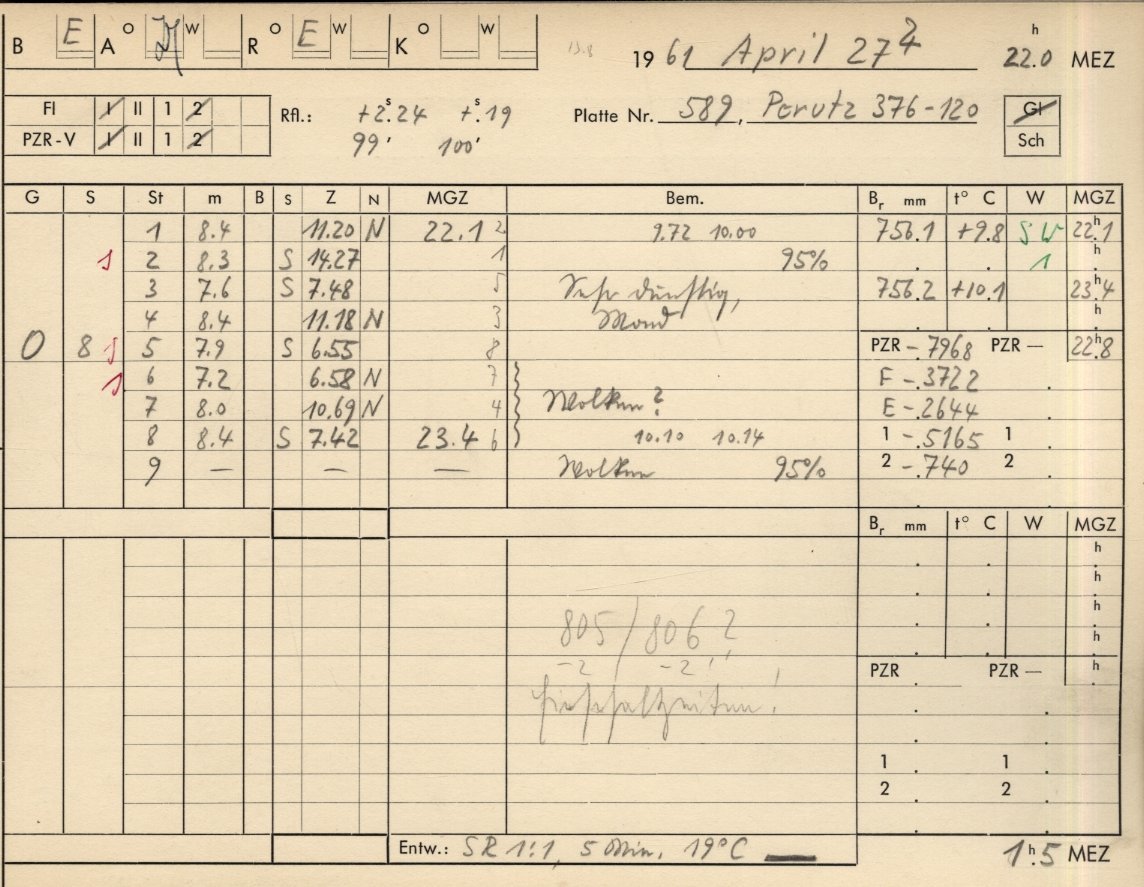 B E A O W R O E W K O W 13.8 19 61 April 27 h 22.0 MEZ
Fl I II 1 2 Rfl.: +2ˢ.24 +ˢ.19 Platte Nr. 589, Perutz 376-120 Gl
PZR-V I II 1 2 99' 100' Sch
G S St m B S Z N MGZ Bem. Br mm t° C W MGZ
1 8.4 11.20 N 22.1 2 9.72 10.00 756.1 +9.8 SW 22ʰ.1
1 2 8.3 S 14.27 1 95% . . 1 h
3 7.6 S 7.48 5 Sehr dunstig, 756.2 +10.1 23ʰ.4
4 8.4 11.18 N 3 Mond . . h
0 8 5 7.9 S 6.55 8 PZR - .7968 PZR — 22ʰ.8
1 6 7.2 6.58 N 7 F - .3722 .
7 8.0 10.69 N 4 Wolken? E - .2644 .
8 8.4 S 7.42 23.4 6 10.10 10.14 1 - .5165 1 .
9 — — — Wolken 95% 2 - .740 2 .
Br mm t° C W MGZ
h
h
h
805/806? h
-2 -2 PZR . PZR — . h
Einschaltzeiten!
1 . 1 .
2 . 2 .
Entw.: SR 1:1, 5 Min. 19°C 1ʰ.5 MEZ